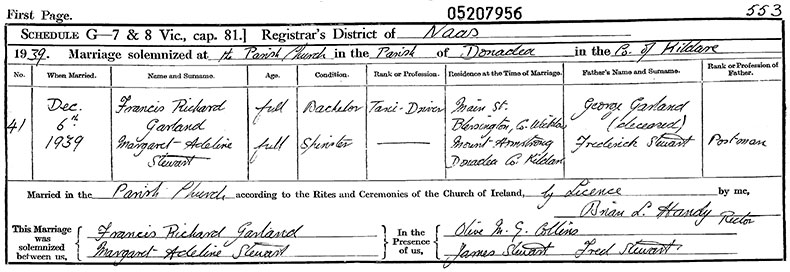 First Page. 05207956 553
SCHEDULE G—7 & 8 Vic., cap. 81.] Registrar's District of Naas
1939. Marriage solemnized at the Parish Church in the Parish of Donadea in the Co. of Kildare
No. When Married. Name and Surname. Age. Condition. Rank or Profession. Residence at the Time of Marriage. Father's Name and Surname. Rank or Profession of Father.
41
Dec. 6th 1939
Francis Richard Garland full Bachelor Taxi-Driver Main St. Blessington, Co. Wicklow George Garland (deceased)
Margaret Adeline Stewart full Spinster —— Mount Armstrong Donadea Co. Kildare Frederick Stewart Postman
Married in the Parish Church according to the Rites and Ceremonies of the Church of Ireland, by Licence by me,
Brian L. Handy Rector
This Marriage was solemnized between us, { Francis Richard Garland
Margaret Adeline Stewart } In the Presence of us, { Olive M. G. Collins
James Stewart Fred Stewart }